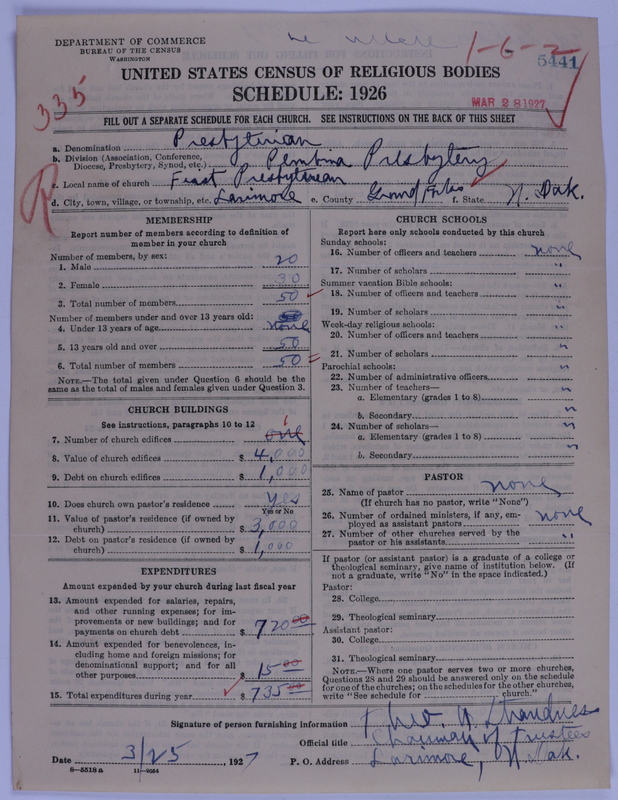 DEPARTMENT OF COMMERCE
BUREAU OF THE CENSUS
WASHINGTON
1-6-2
5441
UNITED STATES CENSUS OF RELIGIOUS BODIES
SCHEDULE: 1926
335
MAR 28 1927
FILL OUT A SEPARATE SCHEDULE FOR EACH CHURCH. SEE INSTRUCTIONS ON THE BACK OF THIS SHEET
a. Denomination Presbyterian
b. Division (Association, Conference, Diocese, Presbytery, Synod, etc.) Pembina Presbytery
c. Local name of church First Presbyterian
R
d. City, town, village, or township, etc. Larimore e. County Grand Forks f. State N. Dak.
MEMBERSHIP
Report number of members according to definition of
member in your church
Number of members, by sex:
1. Male 20
2. Female 30
3. Total number of members 50
Number of members under and over 13 years old:
4. Under 13 years of age none
5. 13 years old and over 50
6. Total number of members 50
NOTE.—The total given under Question 6 should be the
same as the total of males and females given under Question 3.
CHURCH BUILDINGS
See instructions, paragraphs 10 to 12
1
7. Number of church edifices one
8. Value of church edifices $ 4,000
9. Debt on church edifices $ 1,000
10. Does church own pastor's residence Yes
Yes or No
11. Value of pastor's residence (if owned by
church) $ 3,000
12. Debt on pastor's residence (if owned by
church) $ 1,000
EXPENDITURES
Amount expended by your church during last fiscal year
13. Amount expended for salaries, repairs,
and other running expenses; for im-
provements or new buildings; and for
payments on church debt $ 720 00
14. Amount expended for benevolences, in-
cluding home and foreign missions; for
denominational support; and for all
other purposes $ 15 00
15. Total expenditures during year $ 735 00
CHURCH SCHOOLS
Report here only schools conducted by this church
Sunday schools:
16. Number of officers and teachers none
17. Number of scholars "
Summer vacation Bible schools:
18. Number of officers and teachers "
19. Number of scholars "
Week-day religious schools:
20. Number of officers and teachers "
21. Number of scholars "
Parochial schools:
22. Number of administrative officers "
23. Number of teachers—
a. Elementary (grades 1 to 8) "
b. Secondary "
24. Number of scholars—
a. Elementary (grades 1 to 8) "
b. Secondary "
PASTOR
25. Name of pastor none
(If church has no pastor, write "None")
26. Number of ordained ministers, if any, em-
ployed as assistant pastors none
27. Number of other churches served by the
pastor or his assistants "
If pastor (or assistant pastor) is a graduate of a college or
theological seminary, give name of institution below. (If
not a graduate, write "No" in the space indicated.)
Pastor:
28. College
29. Theological seminary
Assistant pastor:
30. College
31. Theological seminary
NOTE.—Where one pastor serves two or more churches,
Questions 28 and 29 should be answered only on the schedule
for one of the churches; on the schedules for the other churches,
write "See schedule for church."
Signature of person furnishing information
Official title Chairman of Trustees
Date 3/25, 1927 P. O. Address Larimore, N. Dak.
8—5518 a 11—9054